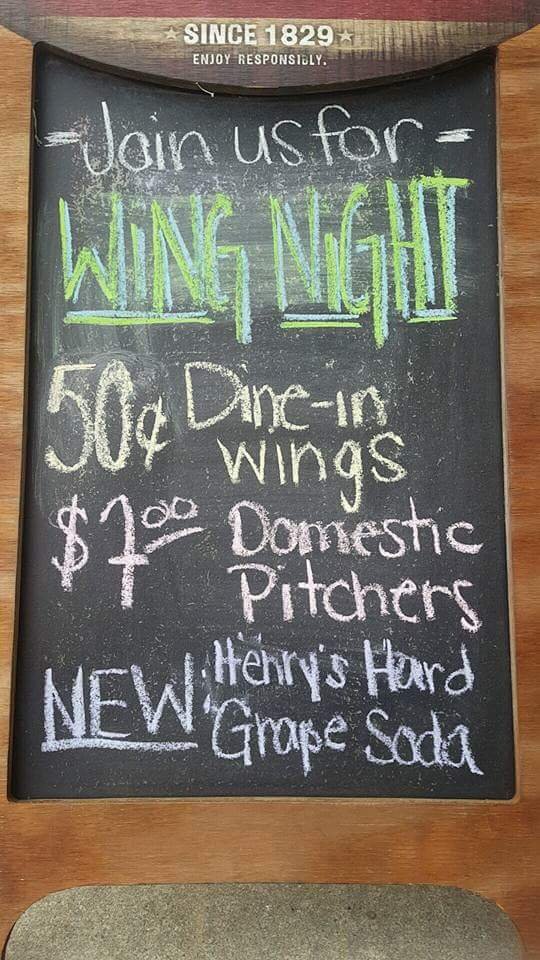 SINCE 1829
ENJOY RESPONSIBLY.
-Join us for-
WING NIGHT
50¢ Dine-in
wings
$7.00 Domestic
Pitchers
NEW: Henry's Hard
Grape Soda